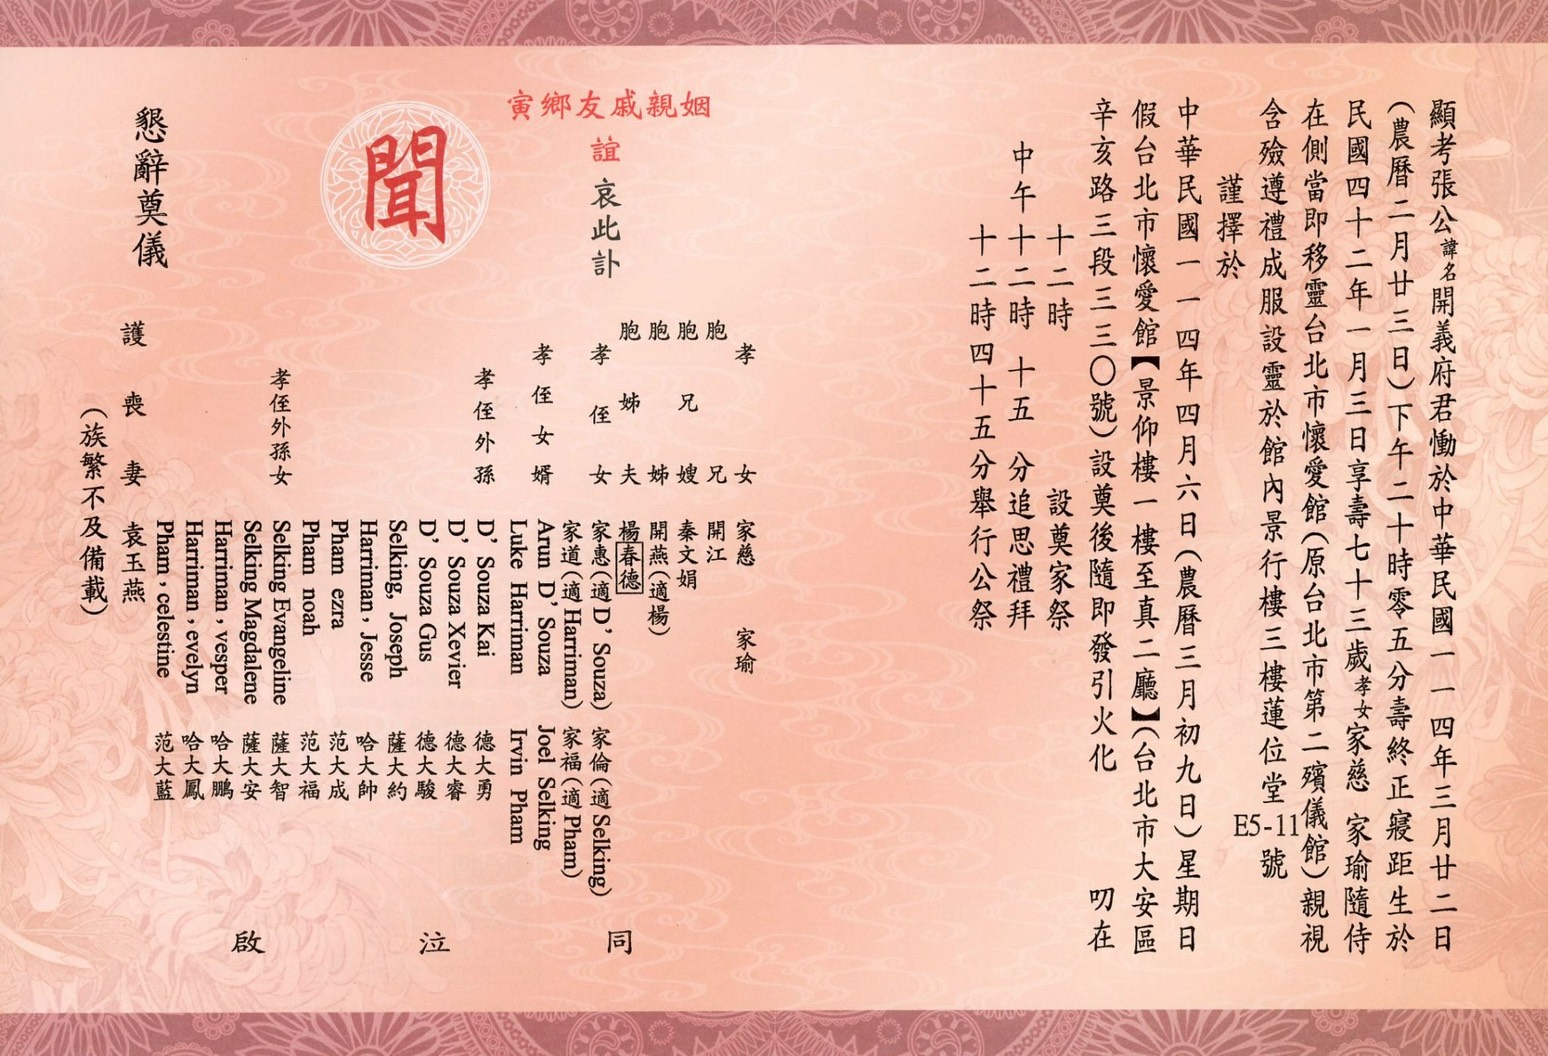 顯考張公諱名開義府君慟於中華民國一一四年三月廿二日
(農曆二月廿三日)下午二十時零五分壽終正寢距生於
民國四十二年一月三日享壽七十三歲孝女家慈 家瑜隨侍
在側當即移靈台北市懷愛館(原台北市第二殯儀館)親視
含殮遵禮成服設靈於館內景行樓三樓蓮位堂E5-11號
謹擇於
中華民國一一四年四月六日(農曆三月初九日)星期日
假台北市懷愛館【景仰樓一樓至真二廳】(台北市大安區
辛亥路三段三三〇號)設奠後隨即發引火化 叨在
十二時 設奠家祭
中午十二時 十五 分追思禮拜
十二時四十五分舉行公祭
寅鄉友戚親姻
誼哀此訃
聞
孝女 家慈 家瑜
胞兄 開江
胞兄嫂 秦文娟
胞姊 開燕(適楊)
胞姊夫 楊春德
孝姪女 家惠(適D’ Souza) 家倫(適Selking)
家道(適Harriman) 家福(適Pham)
孝姪女婿 Arun D’ Souza Joel Selking
Luke Harriman Irvin Pham
孝姪外孫 D’ Souza Kai 德大勇
D’ Souza Xevier 德大睿
D’ Souza Gus 德大駿
Selking, Joseph 薩大約
Harriman，Jesse 哈大帥
Pham ezra 范大成
Pham noah 范大福
孝姪外孫女 Selking Evangeline 薩大智
Selking Magdalene 薩大安
Harriman，vesper 哈大鵬
Harriman，evelyn 哈大鳳
Pham，celestine 范大藍
護喪妻 袁玉燕
(族繁不及備載)
同泣啟
懇辭奠儀